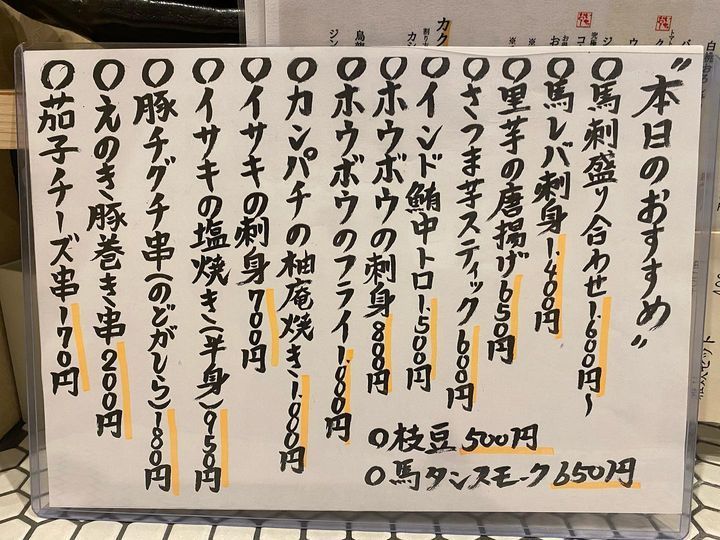 "本日のおすすめ"
○馬刺盛り合わせ1.600円~
○馬レバ刺身1.400円
○里芋の唐揚げ650円
○さつま芋スティック600円
○インド鮪中トロ1.500円
○ホウボウの刺身800円
○ホウボウのフライ1.000円
○カンパチの柚庵焼き1.000円
○イサキの刺身700円
○イサキの塩焼き(半身)950円
○豚チグチ串(のどがしら)180円
○えのき豚巻き串200円
○茄子チーズ串170円
○枝豆500円
○馬タンスモーク650円